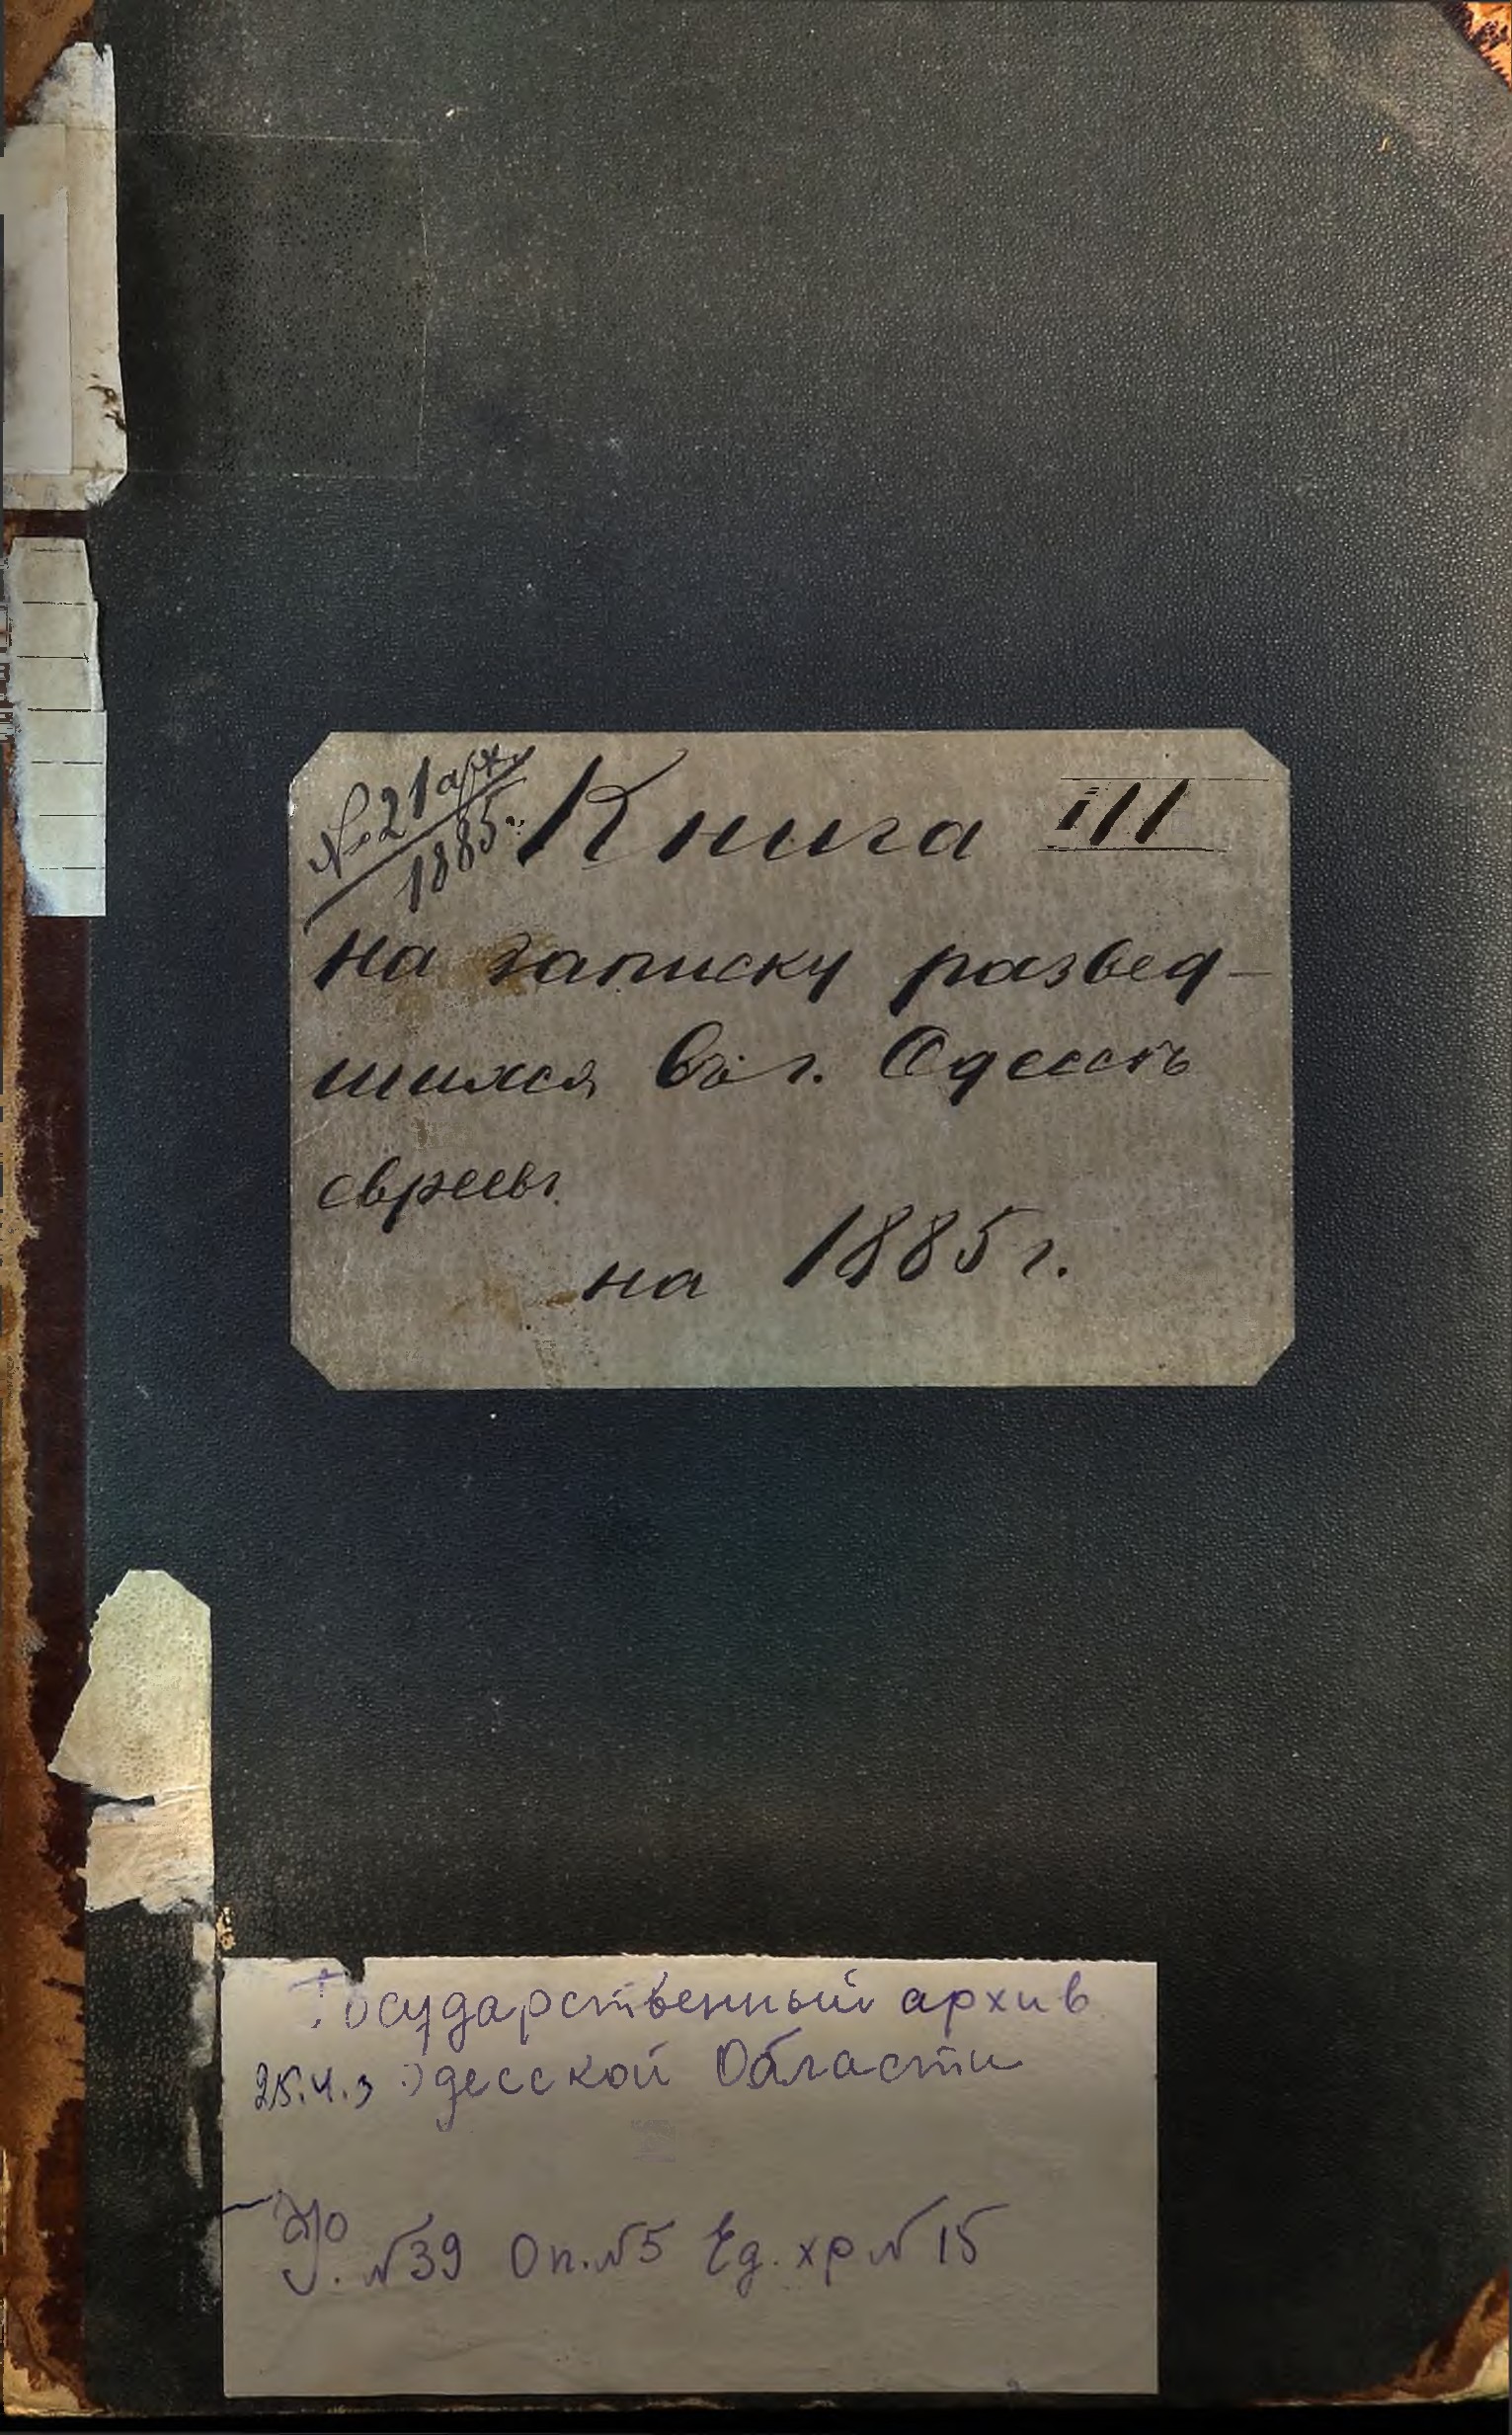 № 21 арх.
1885.
Книга III
на записку развед-
шихся въ г. Одессѣ
евреевъ
на 1885 г.
Государственный архив
25.4.3 Одесской Области
Ф. №39 Оп. №5 Ед. хр №15